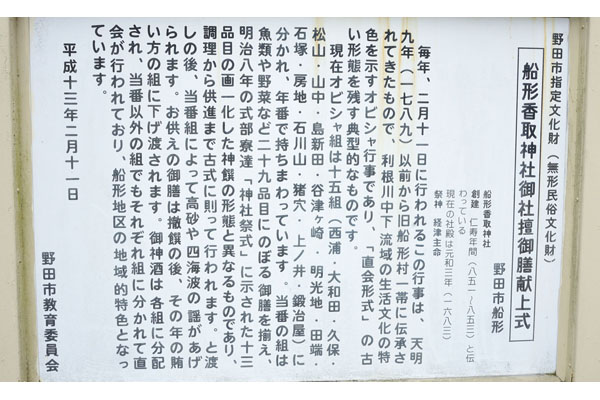 野田市指定文化財（無形民俗文化財）
船形香取神社御社壇御膳献上式
野田市船形
船形香取神社
創建 仁寿年間（八五一〜八五三）と伝
わっている
現在の社殿は元和三年（一六八三）
祭神 経津主命
毎年、二月十一日に行われるこの行事は、天明
九年（一七八九）以前から旧船形村一帯に伝承さ
れてきたもので、利根川中下流域の生活文化の特
色を示すオビシャ行事であり、「直会形式」の古
い形態を残す典型的なものです。
現在オビシャ組は十五組（西浦・大和田・久保・
松山・山中・島新田・谷津ヶ崎・明光地・田端・
石塚・房地・石川山・猪穴・上ノ井・鍛冶屋）に
分かれ、年番で持ちまわっています。当番の組は
魚類や野菜など二十九品目にのぼる御膳を揃え、
明治八年の式部寮達「神社祭式」に示された十三
品目の画一化した神饌の形態と異なるものであり、
調理から供進まで古式に則って行われます。と渡
しの後、当番組によって高砂や四海波の謡があげ
られます。お供えの御膳は撤饌の後、その年の賄
い方の組に下げ渡されます。御神酒は各組に分配
され、当番以外の組でもそれぞれ組に分かれて直
会が行われており、船形地区の地域的特色となっ
ています。
平成十三年二月十一日
野田市教育委員会